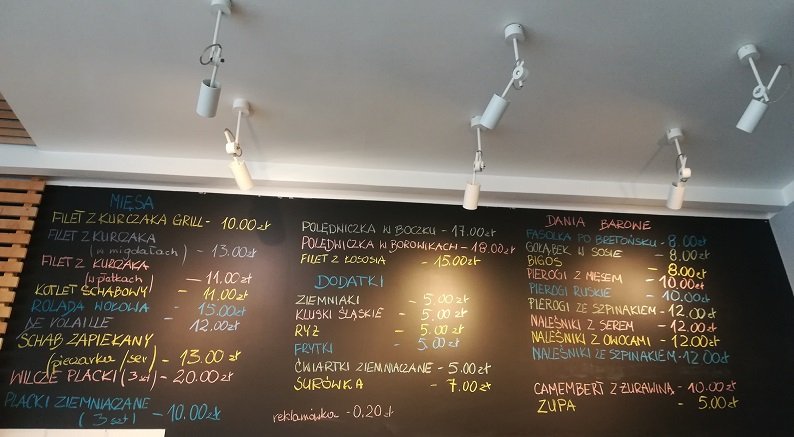 MIĘSA
FILET Z KURCZAKA GRILL - 10.00 zł
FILET Z KURCZAKA
(w migdałach) - 13.00 zł
FILET Z KURCZAKA
(w płatkach) - 11.00 zł
KOTLET SCHABOWY - 11.00 zł
ROLADA WOŁOWA - 15.00 zł
DE VOLAILLE - 12.00 zł
SCHAB ZAPIEKANY
(pieczarka/ser) - 13.00 zł
WILCZE PLACKI (3 szt) - 20.00 zł
PLACKI ZIEMNIACZANE
(3 szt) - 10.00 zł
POLĘDNICZKA W BOCZKU - 17.00 zł
POLĘDWICZKA W BOROWIKACH - 18.00 zł
FILET Z ŁOSOSIA - 15.00 zł
DODATKI
ZIEMNIAKI - 5.00 zł
KLUSKI ŚLĄSKIE - 5.00 zł
RYŻ - 5.00 zł
FRYTKI - 5.00 zł
ĆWIARTKI ZIEMNIACZANE - 5.00 zł
SURÓWKA - 7.00 zł
reklamówka - 0.20 zł
DANIA BAROWE
FASOLKA PO BRETOŃSKU - 8.00 zł
GOŁĄBEK W SOSIE - 8.00 zł
BIGOS - 8.00 zł
PIEROGI Z MIĘSEM - 10.00 zł
PIEROGI RUSKIE - 10.00 zł
PIEROGI ZE SZPINAKIEM - 12.00 zł
NALEŚNIKI Z SEREM - 12.00 zł
NALEŚNIKI Z OWOCAMI - 12.00 zł
NALEŚNIKI ZE SZPINAKIEM - 12.00 zł
CAMEMBERT Z ŻURAWINĄ - 10.00 zł
ZUPA - 5.00 zł